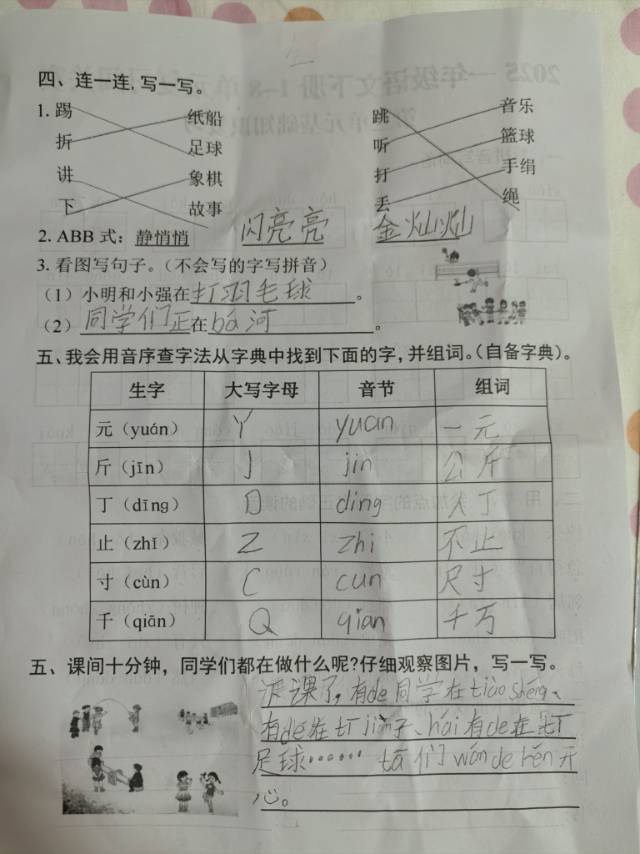 四、连一连,写一写。
1. 踢 纸船 跳 音乐
折 足球 听 篮球
讲 象棋 打 手绢
下 故事 丢 绳
2. ABB 式：静悄悄 闪亮亮 金灿灿
3. 看图写句子。（不会写的字写拼音）
（1）小明和小强在打羽毛球。
（2）同学们正在bá河。
五、我会用音序查字法从字典中找到下面的字,并组词。（自备字典）。
生字 大写字母 音节 组词
元（yuán） Y yuan 一元
斤（jīn） J jin 公斤
丁（dīng） D ding 人丁
止（zhǐ） Z zhi 不止
寸（cùn） C cun 尺寸
千（qiān） Q qian 千万
五、课间十分钟，同学们都在做什么呢?仔细观察图片，写一写。
课了，有de同学在tiào shéng、
有de在 jiàn子、hái有de在
足球…… tā们wán de hěn开
心。